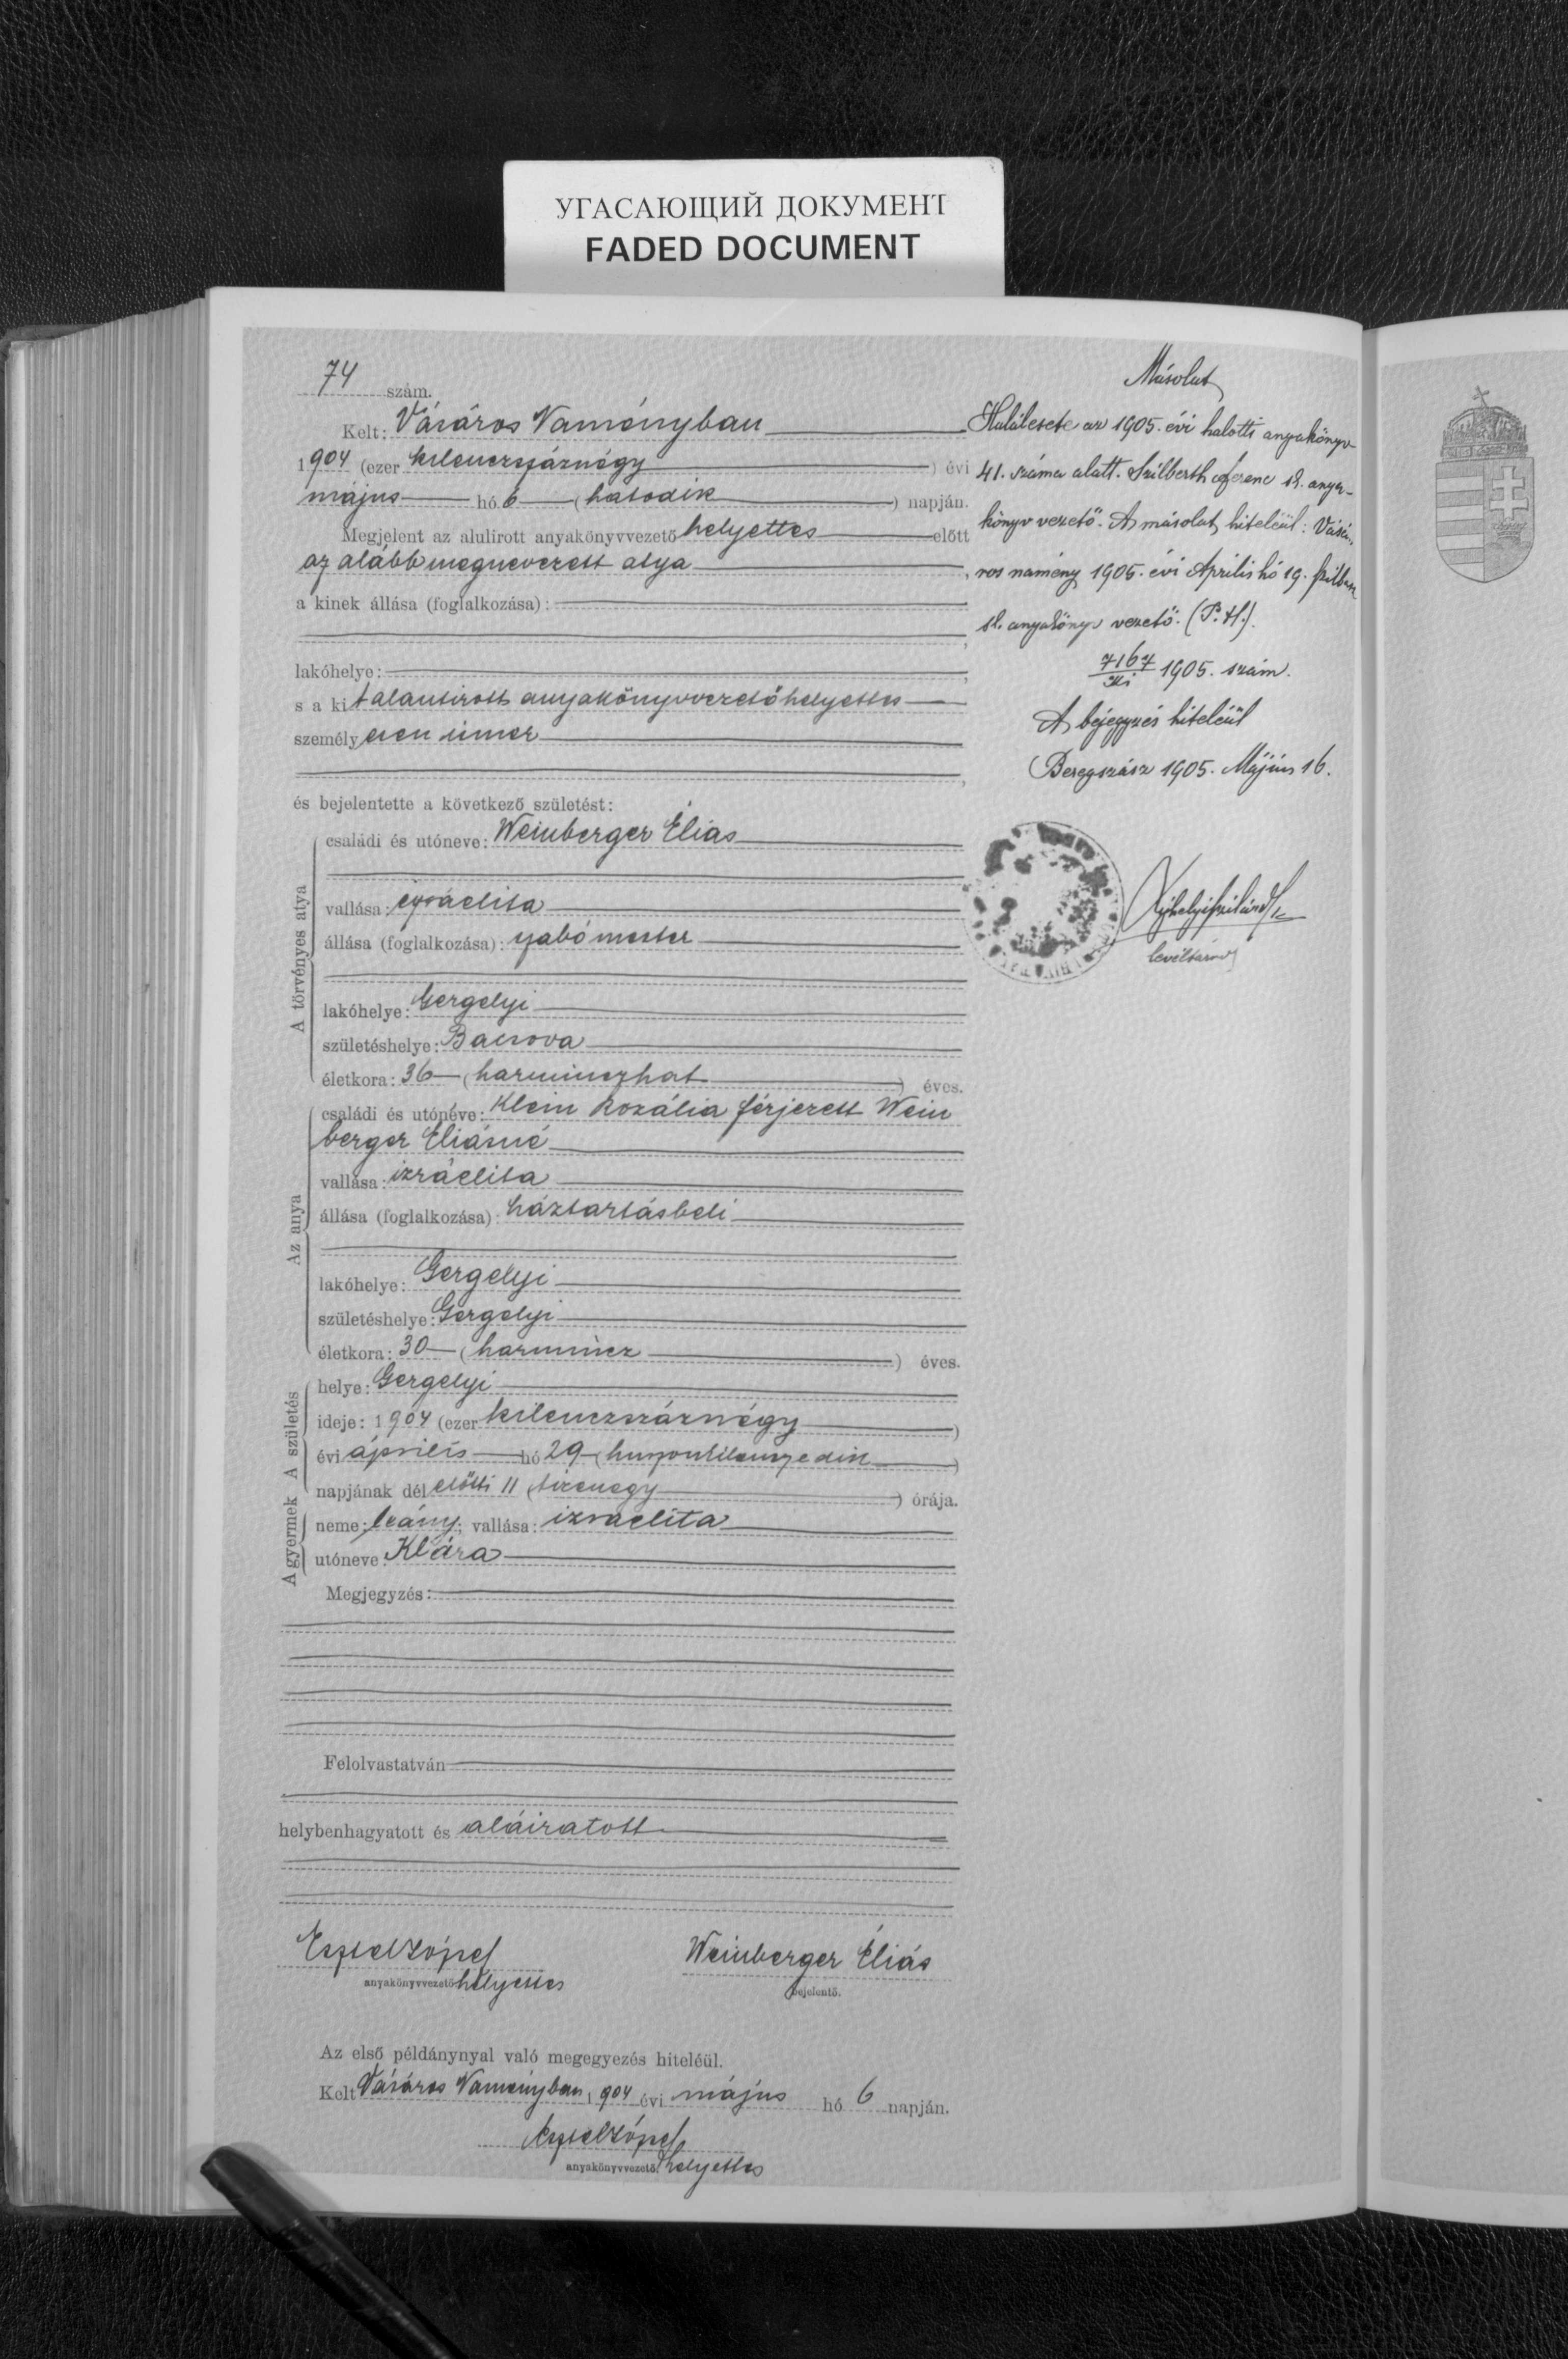 УГАСАЮЩИЙ ДОКУМЕНТ
FADED DOCUMENT
74 szám.
Kelt: Vásáros Naményban
1904 (ezer kilenczszáznégy) évi
május hó 6 (hatodik) napján.
Megjelent az alulirott anyakönyvvezető helyettes előtt
az alább megnevezett atya,
a kinek állása (foglalkozása):
,
lakóhelye: ,
s a ki t alantirott anyakönyvvezető helyettes
személyesen ismer
,
és bejelentette a következő születést:
A törvényes atya
családi és utóneve: Weinberger Éliás
vallása: izráelita
állása (foglalkozása): szabó mester
lakóhelye: Gergelyi
születéshelye: Bacsova
életkora: 36 (harminczhat) éves.
Az anya
családi és utónéve: Klein Rozália férjezett Wein
berger Éliásné
vallása: izráelita
állása (foglalkozása): háztartásbeli
lakóhelye: Gergelyi
születéshelye: Gergelyi
életkora: 30 (harmincz) éves.
A születés
helye: Gergelyi
ideje: 1904 (ezer kilenczszáznégy)
évi április hó 29 (huszonkilenczedik)
napjának dél előtti 11 (tizenegy) órája.
A gyermek
neme: leány; vallása: izraelita
utóneve: Klára
Megjegyzés:
Felolvastatván
helybenhagyatott és aláiratott
József Weinberger Éliás
anyakönyvvezető helyettes bejelentő.
Az első példánynyal való megegyezés hiteléül.
Kelt Vásáros Naményban 1904 évi május hó 6 napján.
József
anyakönyvvezető helyettes
Másolat
Halálesete az 1905. évi halotti anyakönyv
41. száma alatt. Szilberth Ferenc h. anya-
könyv vezető. A másolat hiteléül: Vásá-
ros namény 1905. évi Április hó 19.
h. anyakönyv vezető. (P. H.).
7167 1905. szám.
A bejegyzés hiteléül
Beregszász 1905. Május 16.
levéltárnok